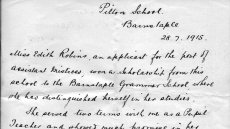 Pilton School.
Barnstaple
28.7.1915.
Miss Edith Robins, an applicant for the post of
assistant mistress, won a Scholarship from this
school to the Barnstaple Grammar School where
she has distinguished herself in her studies.
She served two terms with me as a Pupil
Teacher and showed much in her